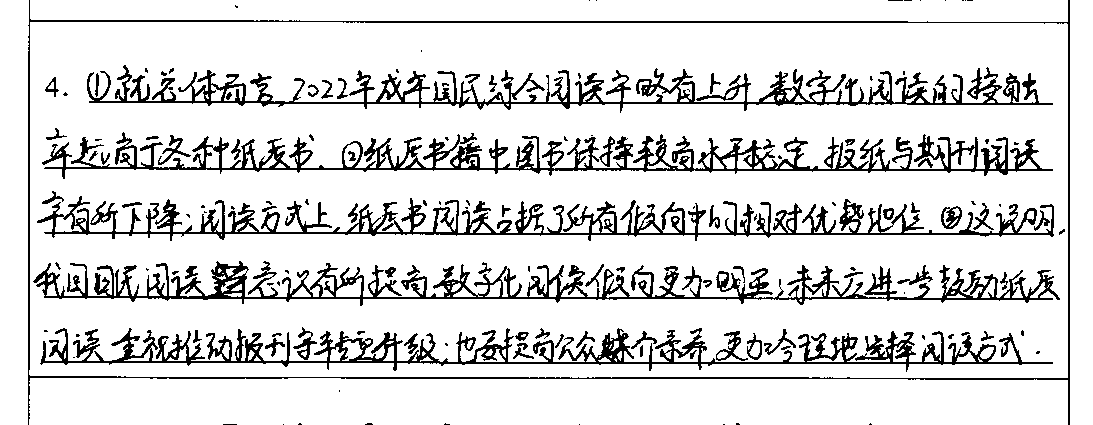 4. ①就总体而言,2022年成年国民综合阅读率略有上升,数字化阅读的接触
率远高于各种纸质书. ②纸质书籍中图书保持较高水平稳定,报纸与期刊阅读
率有所下降;阅读方式上,纸质书阅读占据了所有倾向中的相对优势地位. ③这说明,
我国国民阅读意识有所提高,数字化阅读倾向更加明显;未来应进一步鼓励纸质
阅读,重视推动报刊等转型升级;也要提高公众媒介素养,更加合理地选择阅读方式.